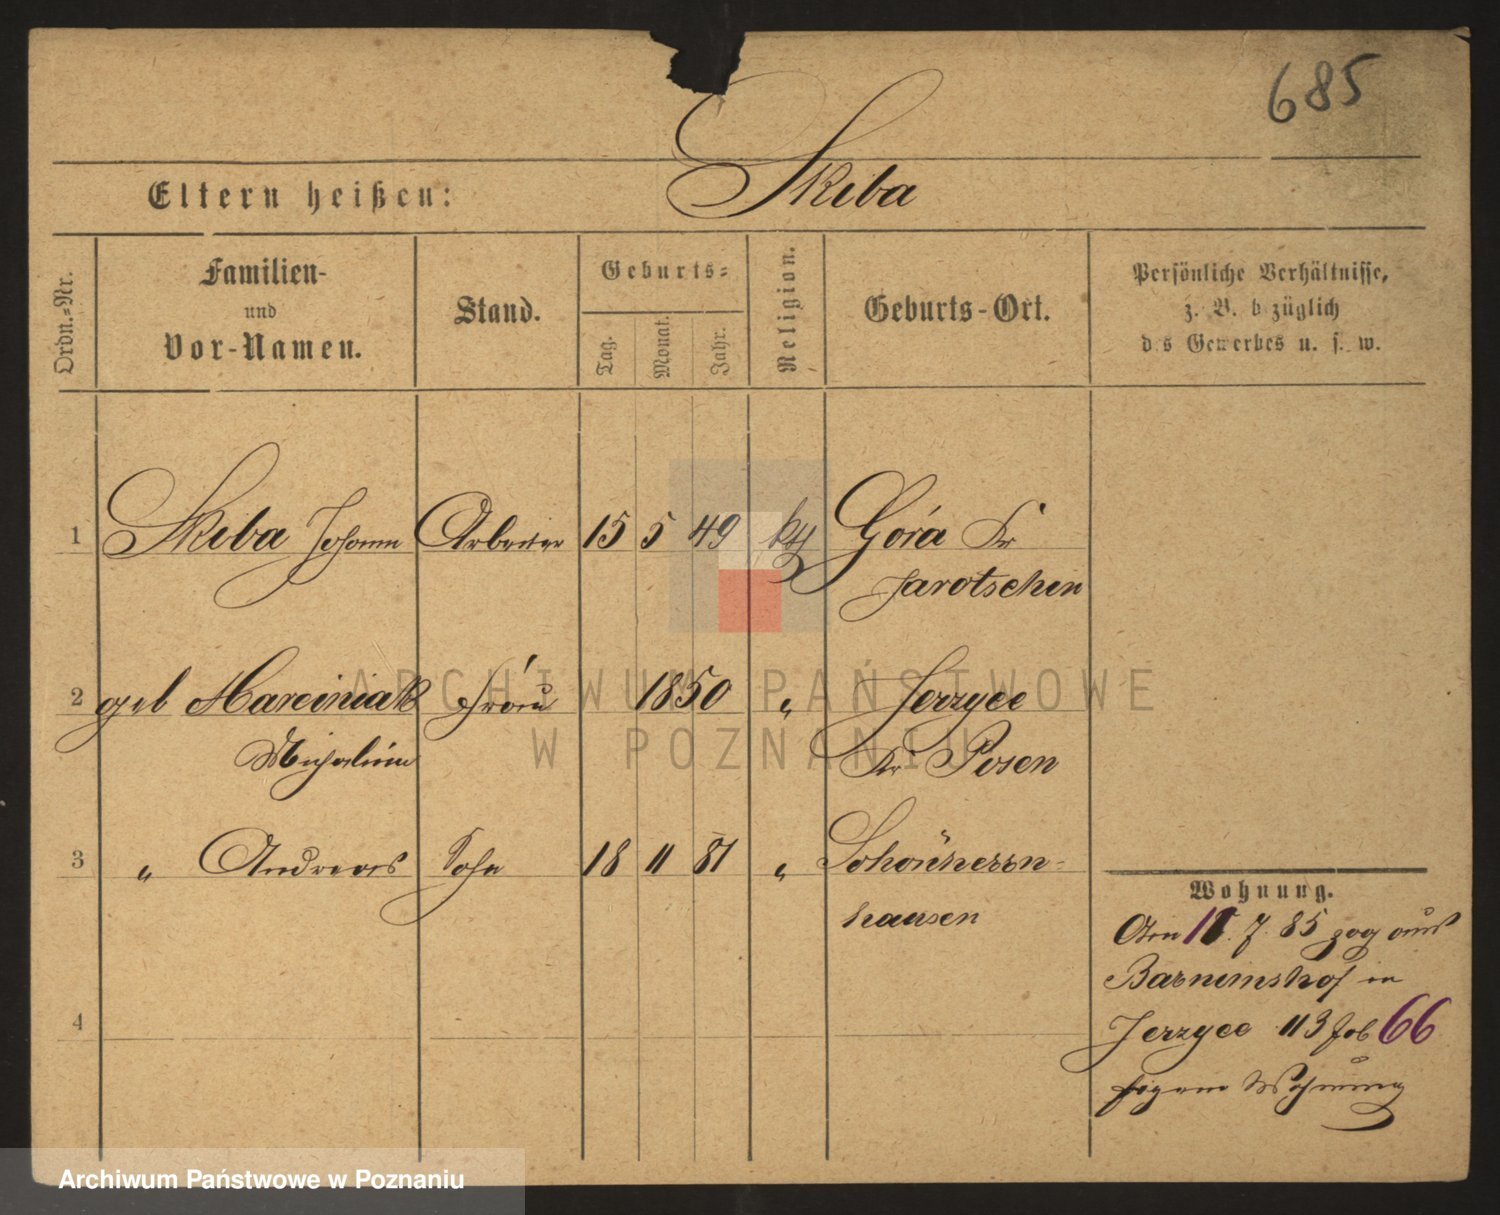 685
Skiba
Eltern heißen:
Ordn.=Nr.
Familien-
und
Vor-Namen.
Stand.
Geburts=
Tag.
Monat.
Jahr.
Religion.
Geburts-Ort.
Persönliche Verhältnisse,
z. B. bezüglich
des Gewerbes u. s. w.
1 Skiba Johann Arbeiter 15 5 49 kth Góra Kr
Jarotschin
2 geb Marciniak Frau 1850 " Jerzyce
Michalina Kr Posen
3 " Andreas Sohn 18 11 81 " Schönherrn-
hausen
4
Wohnung.
Am 7. 85 zog aus
Barnimshof in
Jerzyce 113 66
Wohnung
ARCHIWUM PAŃSTWOWE
W POZNANIU
Archiwum Państwowe w Poznaniu